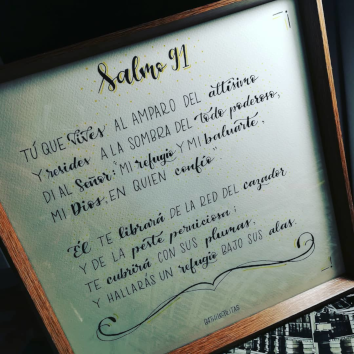 Salmo 91
TÚ QUE Vives AL AMPARO DEL altísimo
Y resides A LA SOMBRA DEL todo poderoso,
DI AL Señor: "MI refugio Y MI baluarte,
MI Dios, EN QUIEN confío"
Él TE librará DE LA RED DEL cazador
Y DE LA peste perniciosa;
TE cubrirá CON SUS plumas,
Y HALLARÁS UN refugio BAJO SUS alas.